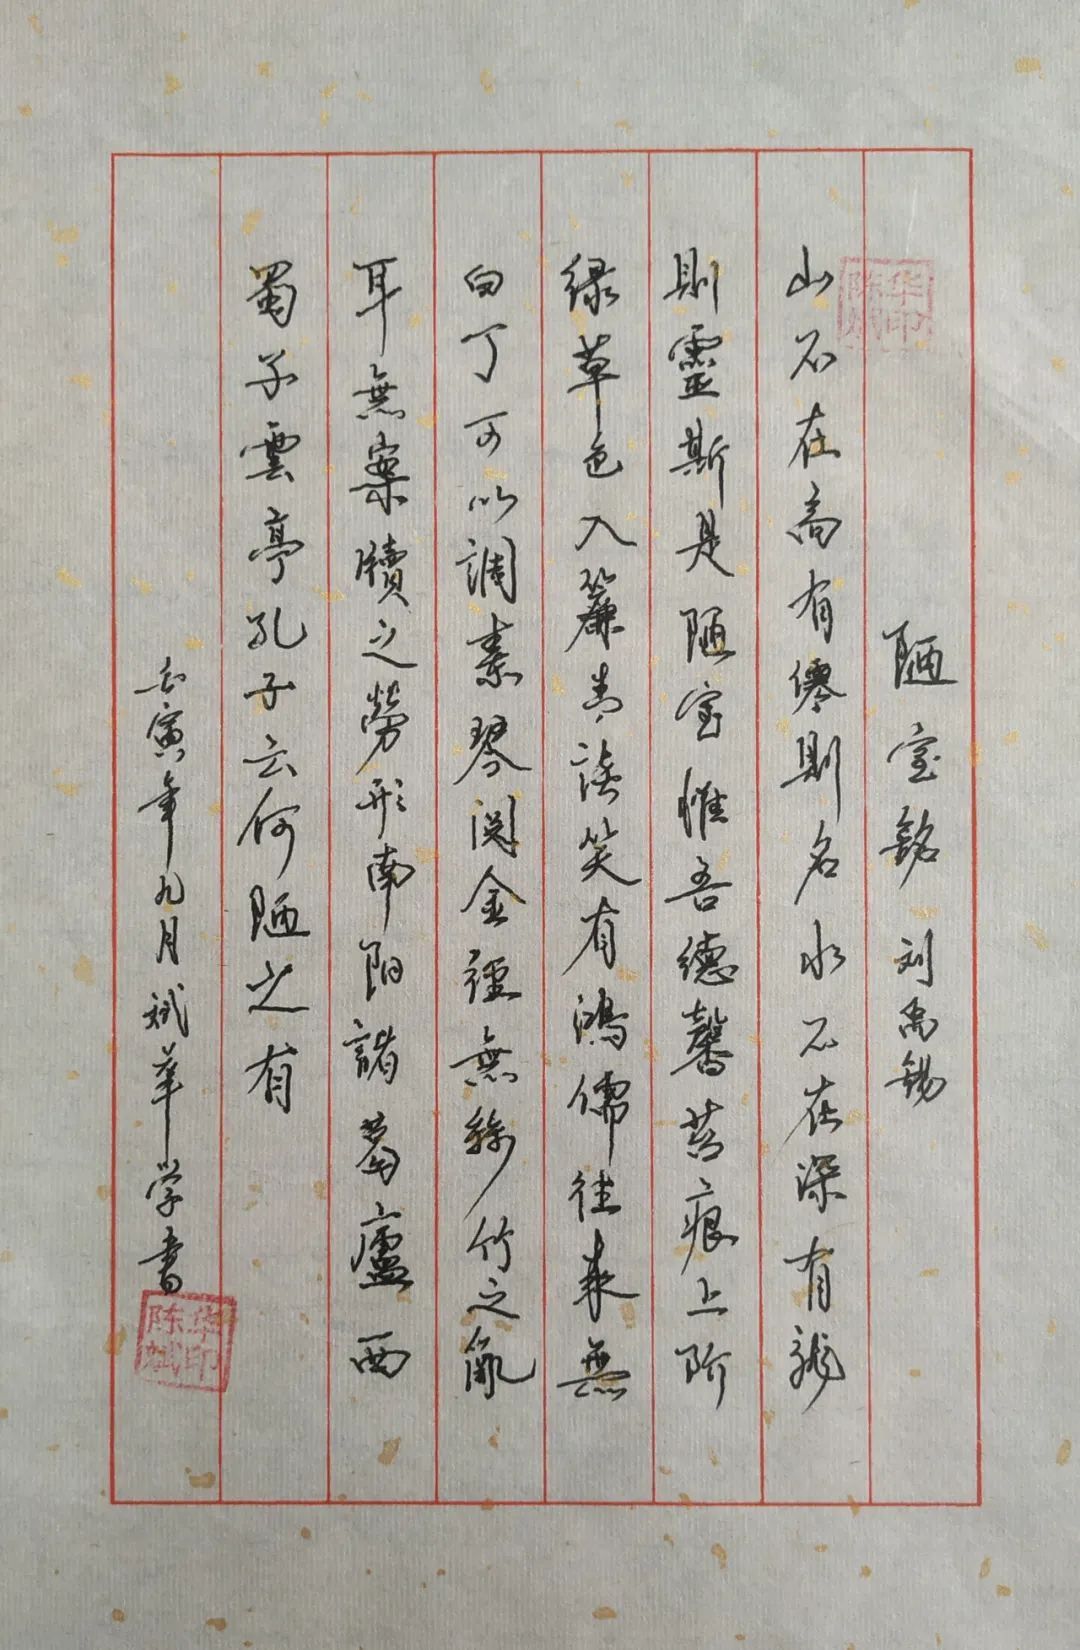 陋室銘 刘禹錫
山不在高有僊則名水不在深有龍
則靈斯是陋室惟吾德馨苔痕上阶
绿草色入簾青談笑有鴻儒往来無
白丁可以調素琴阅金經無絲竹之亂
耳無案牘之勞形南阳諸葛廬西
蜀子雲亭孔子云何陋之有
壬寅年九月斌華学書
华印陈斌
华印陈斌